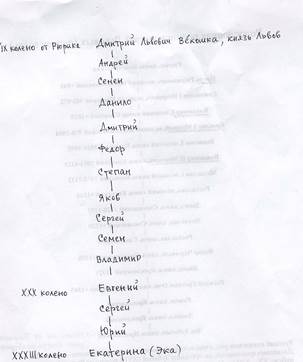 IX колено от Рюрика Дмитрий Львович Векошка, князь Львов
Андрей
Семен
Данило
Дмитрий
Федор
Степан
Яков
Сергей
Семен
Владимир
XXX колено Евгений
Сергей
Юрий
XXXIII колено Екатерина (Эка)